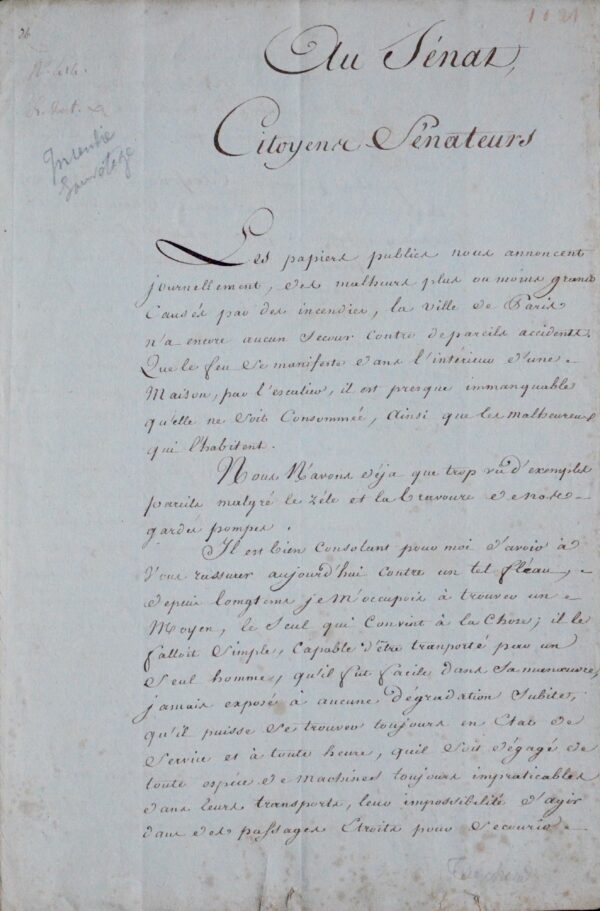 26
1021
Au Sénat,
Citoyens Sénateurs
Incendie
Sauvetage
Les papiers publics nous annoncent
journellement, des malheurs plus ou moins grands
Causés par des incendies, la ville de Paris
n'a encore aucun secour contre de pareils accidents.
Que le feu se manifeste dans l'intérieur d'une
Maison, par l'escalier, il est presque immanquable
qu'elle ne soit Consommée, ainsi que les malheureux
qui l'habitent.
Nous N'avons déja que trop vu d'exemples
pareils malgré le zéle et la bravoure de nos
gardes pompes.
Il est bien Consolant pour moi d'avoir à
Vous rassurer aujourd'hui contre un tel fléau,
depuis longtems je M'occupois à trouver un
Moyen, le seul qui Convint à la Chose; il le
falloit simple, Capable d'être tranporté par un
seul homme, qu'il fut facile dans sa manœuvre,
jamais exposé à aucune dégradation subite,
qu'il puisse se trouver toujours en Etat de
Service et à toute heure, quil soit dégagé de
toute espéce de Machines toujours impraticables
dans leurs transports, leur impossibilité d'agir
dans des passages Etroits pour secourir